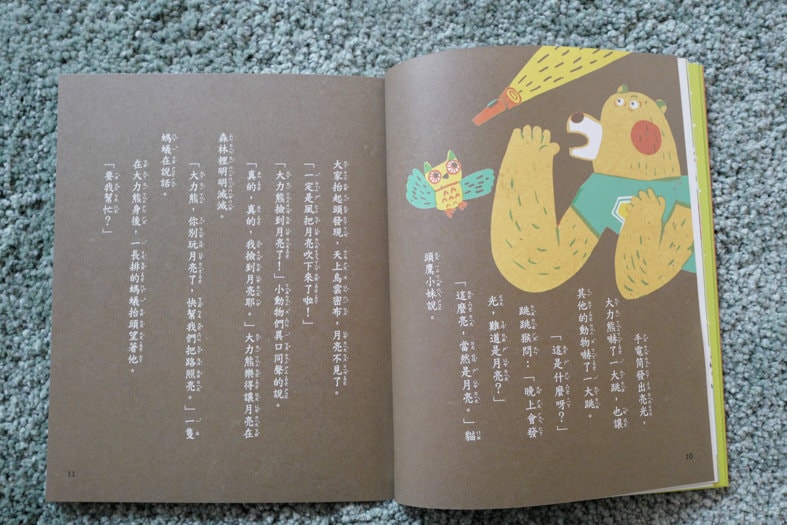 手電筒發出亮光，
大力熊嚇了一大跳，也讓
其他的動物嚇了一大跳。
「這是什麼呀？」
跳跳猴問：「晚上會發
光，難道是月亮？」
「這麼亮，當然是月亮。」貓
頭鷹小妹說。
10
大家抬起頭發現，天上烏雲密布，月亮不見了。
「一定是風把月亮吹下來了啦！」
「大力熊撿到月亮了！」小動物們異口同聲的說。
「真的，真的，我撿到月亮耶。」大力熊樂得讓月亮在
森林裡明明滅滅。
「大力熊，你別玩月亮了，快幫我們把路照亮。」一隻
螞蟻在說話。
在大力熊身後，一長排的螞蟻抬頭望著他。
「要我幫忙？」
11